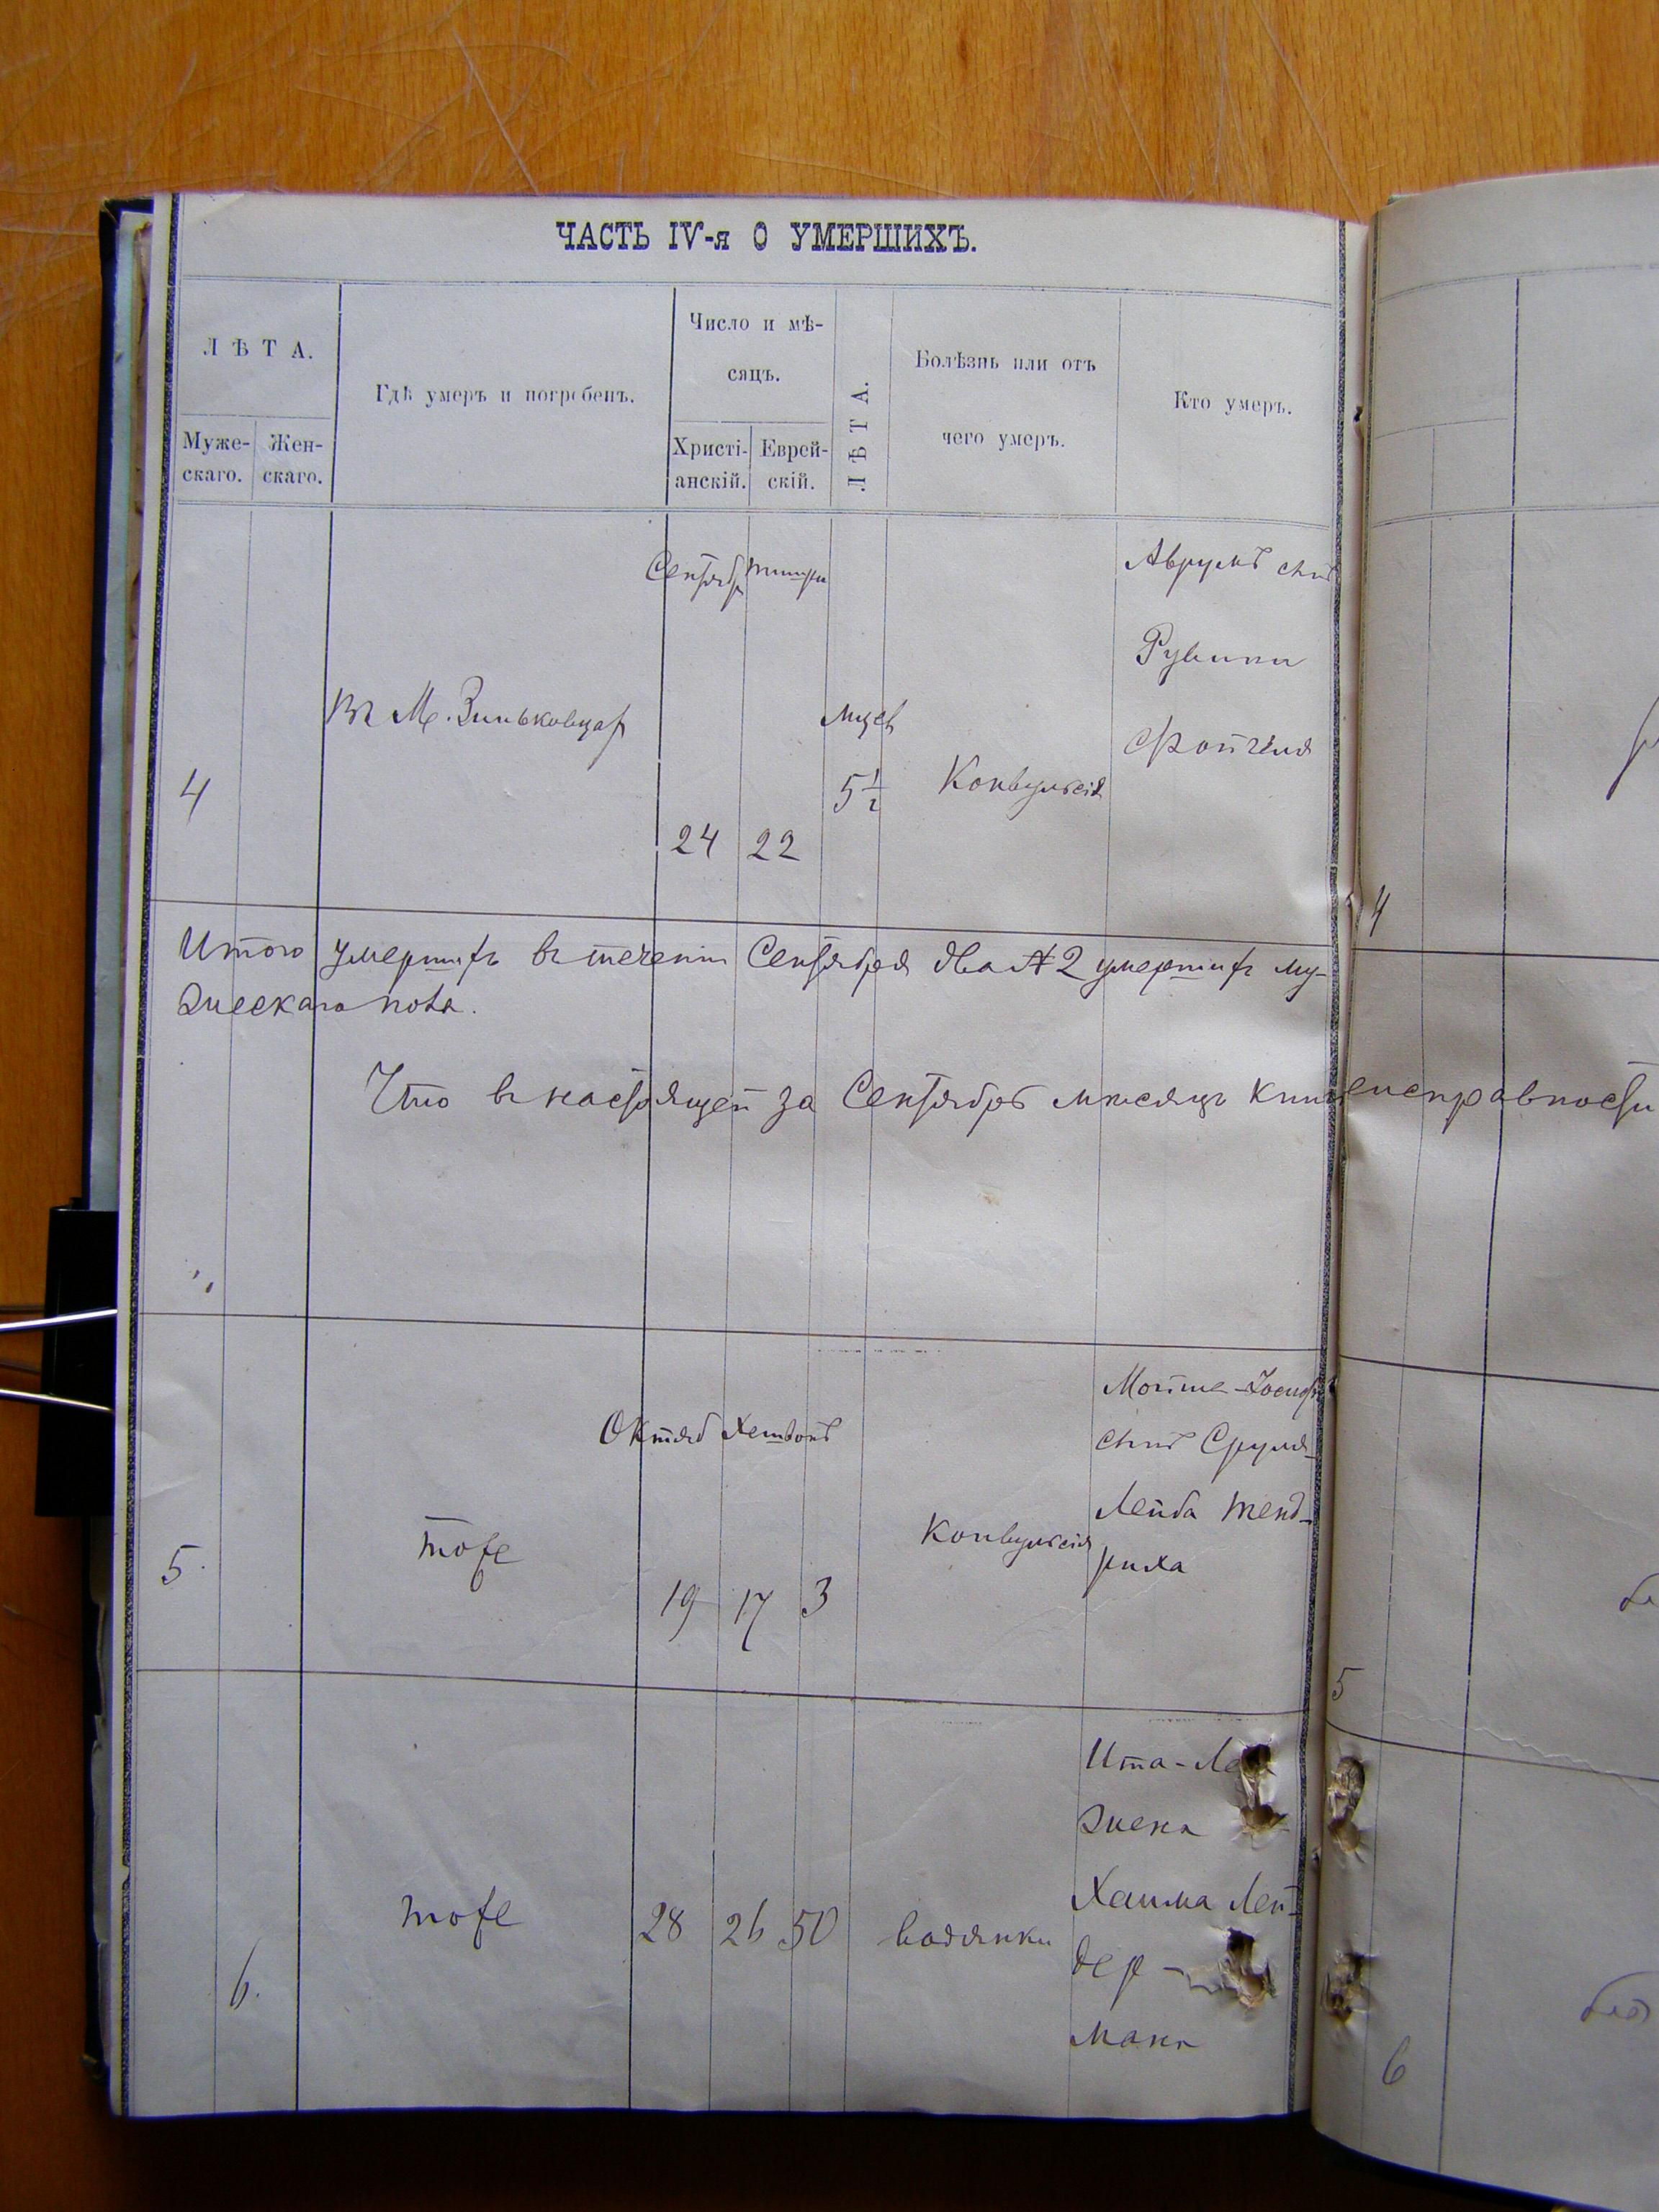 ЧАСТЬ IV-я О УМЕРШИХЪ.
ЛѢТА.
Муже-
скаго.
Жен-
скаго.
Гдѣ умеръ и погребенъ.
Число и мѣ-
сяцъ.
Христі-
анскій.
Еврей-
скій.
ЛѢТА.
Болѣзнь или отъ
чего умеръ.
Кто умеръ.
4
Въ М. Зиньковцах
Сентябр
тишри
24
22
мцев
5 1/2
Конвульсія
Аврумъ сынъ
Рувина
4
Итого умершихъ въ течении Сентября два № 2 умершихъ му-
жескаго пола.
Что въ настоящей за Сентябрь месяцъ неисправности
5.
тоже
Октяб
Хешвонъ
19
17
3
Конвульсія
Мойше-Іосифъ
сынъ Сруля-
Лейба Тенд-
риха
5
6.
тоже
28
26
50
водянки
Ита-
жена
Хаима Лен-
дер-
мана
6